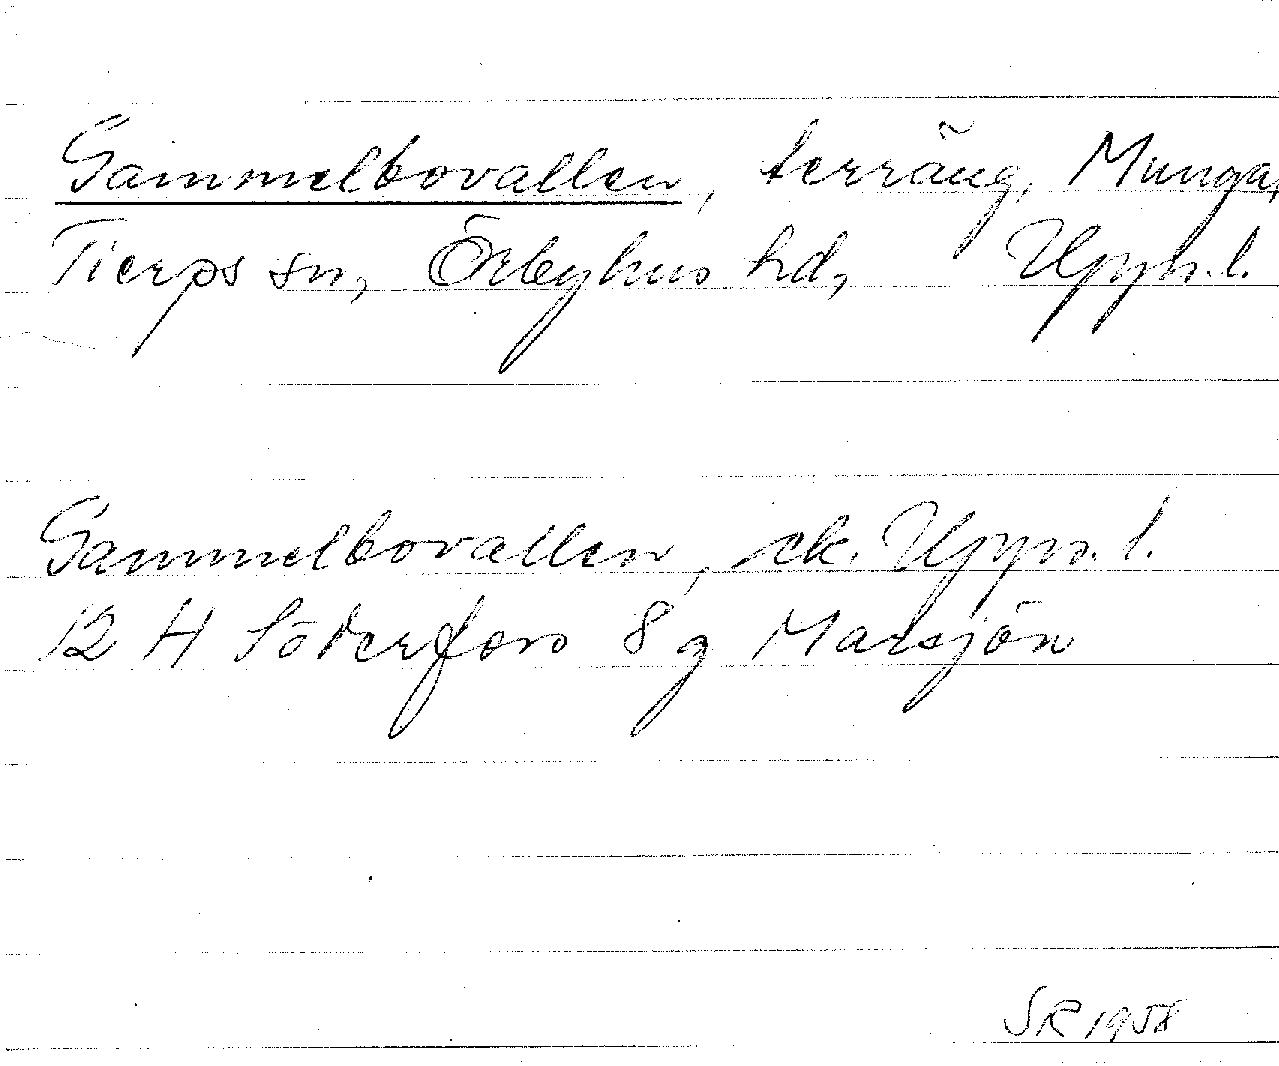 Gammelbovallen, terräng, Munga,
Tierps sn, Örbyhus hd, Upps. l.
Gammelbovallen, ek. Upps. l.
12 H Söderfors 8 g Marsjön
SR 1958